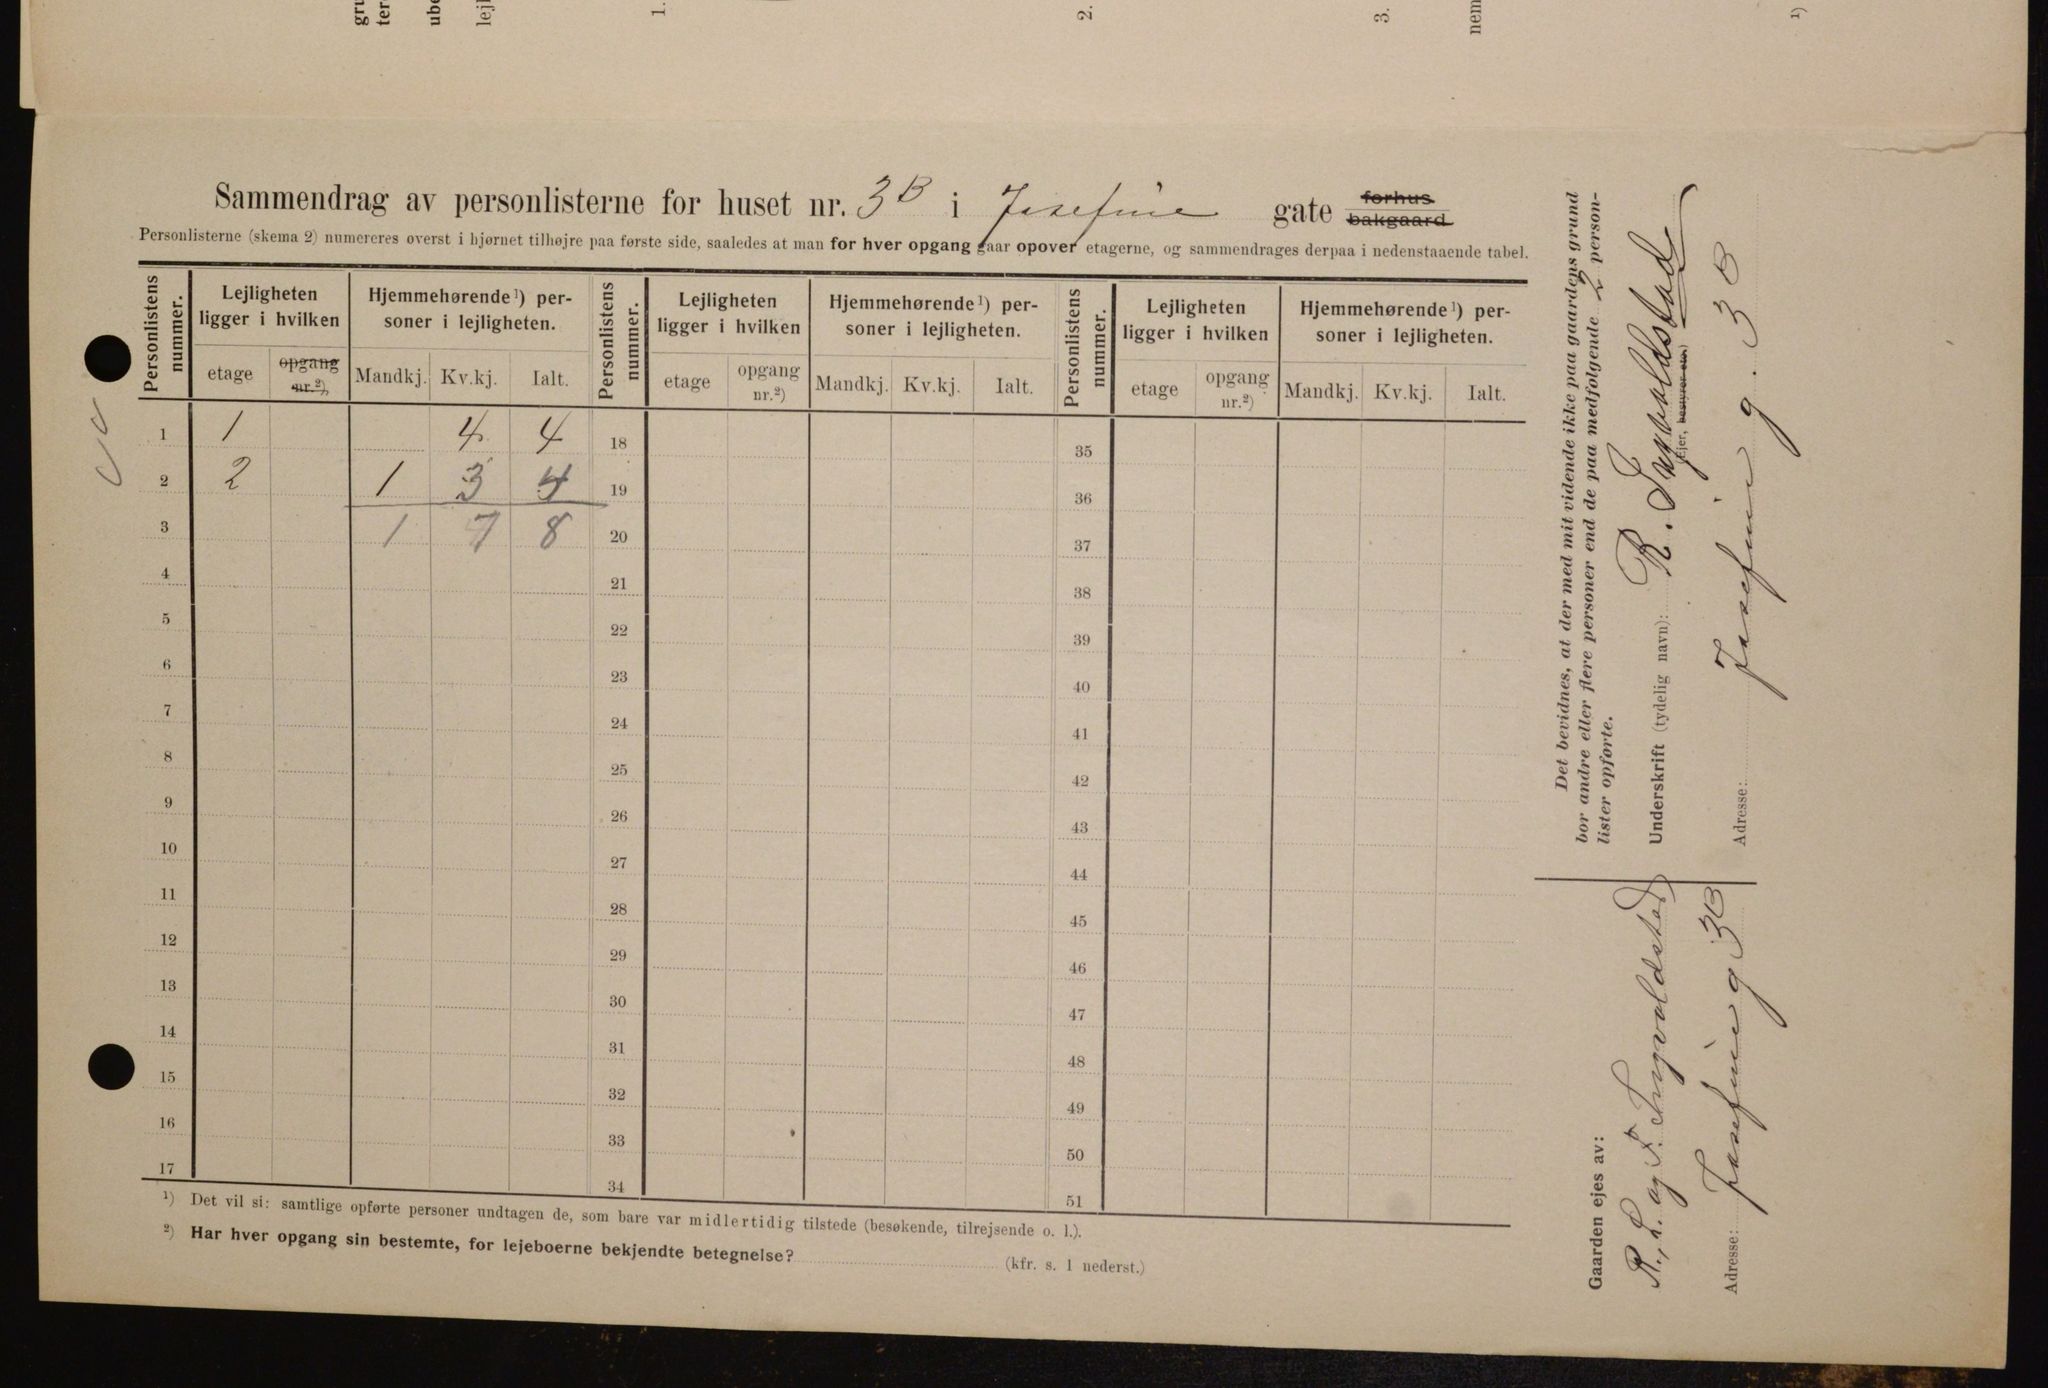 gru
ter
ube
lejl
1.
2.
3.
nem
1)
Sammendrag av personlisterne for huset nr. 3B i Josefine gate forhus bakgaard
Personlisterne (skema 2) numereres øverst i hjørnet tilhøjre paa første side, saaledes at man for hver opgang gaar opover etagerne, og sammendrages derpaa i nedenstaaende tabel.
Personlistens nummer. Lejligheten ligger i hvilken Hjemmehørende ¹) personer i lejligheten. Personlistens nummer. Lejligheten ligger i hvilken Hjemmehørende ¹) personer i lejligheten. Personlistens nummer. Lejligheten ligger i hvilken Hjemmehørende ¹) personer i lejligheten.
etage opgang nr.²) Mandkj. Kv.kj. Ialt. etage opgang nr.²) Mandkj. Kv.kj. Ialt. etage opgang nr.²) Mandkj. Kv.kj. Ialt.
1 1 4 4 18 35
2 2 1 3 4 19 36
3 1 7 8 20 37
4 21 38
5 22 39
6 23 40
7 24 41
8 25 42
9 26 43
10 27 44
11 28 45
12 29 46
13 30 47
14 31 48
15 32 49
16 33 50
17 34 51
¹) Det vil si: samtlige opførte personer undtagen de, som bare var midlertidig tilstede (besøkende, tilrejsende o. l.).
²) Har hver opgang sin bestemte, for lejeboerne bekjendte betegnelse? (kfr. s. 1 nederst.)
Det bevidnes, at der med mit vidende ikke paa gaardens grund
bor andre eller flere personer end de paa medfølgende 2 person-
lister opførte.
Underskrift (tydelig navn): R. Ingvaldstad
Ejer, bestyrer etc.)
Adresse: Josefine g. 3B
Gaarden ejes av:
R., L. og F. Ingvaldstad
Adresse: Josefine g 3B